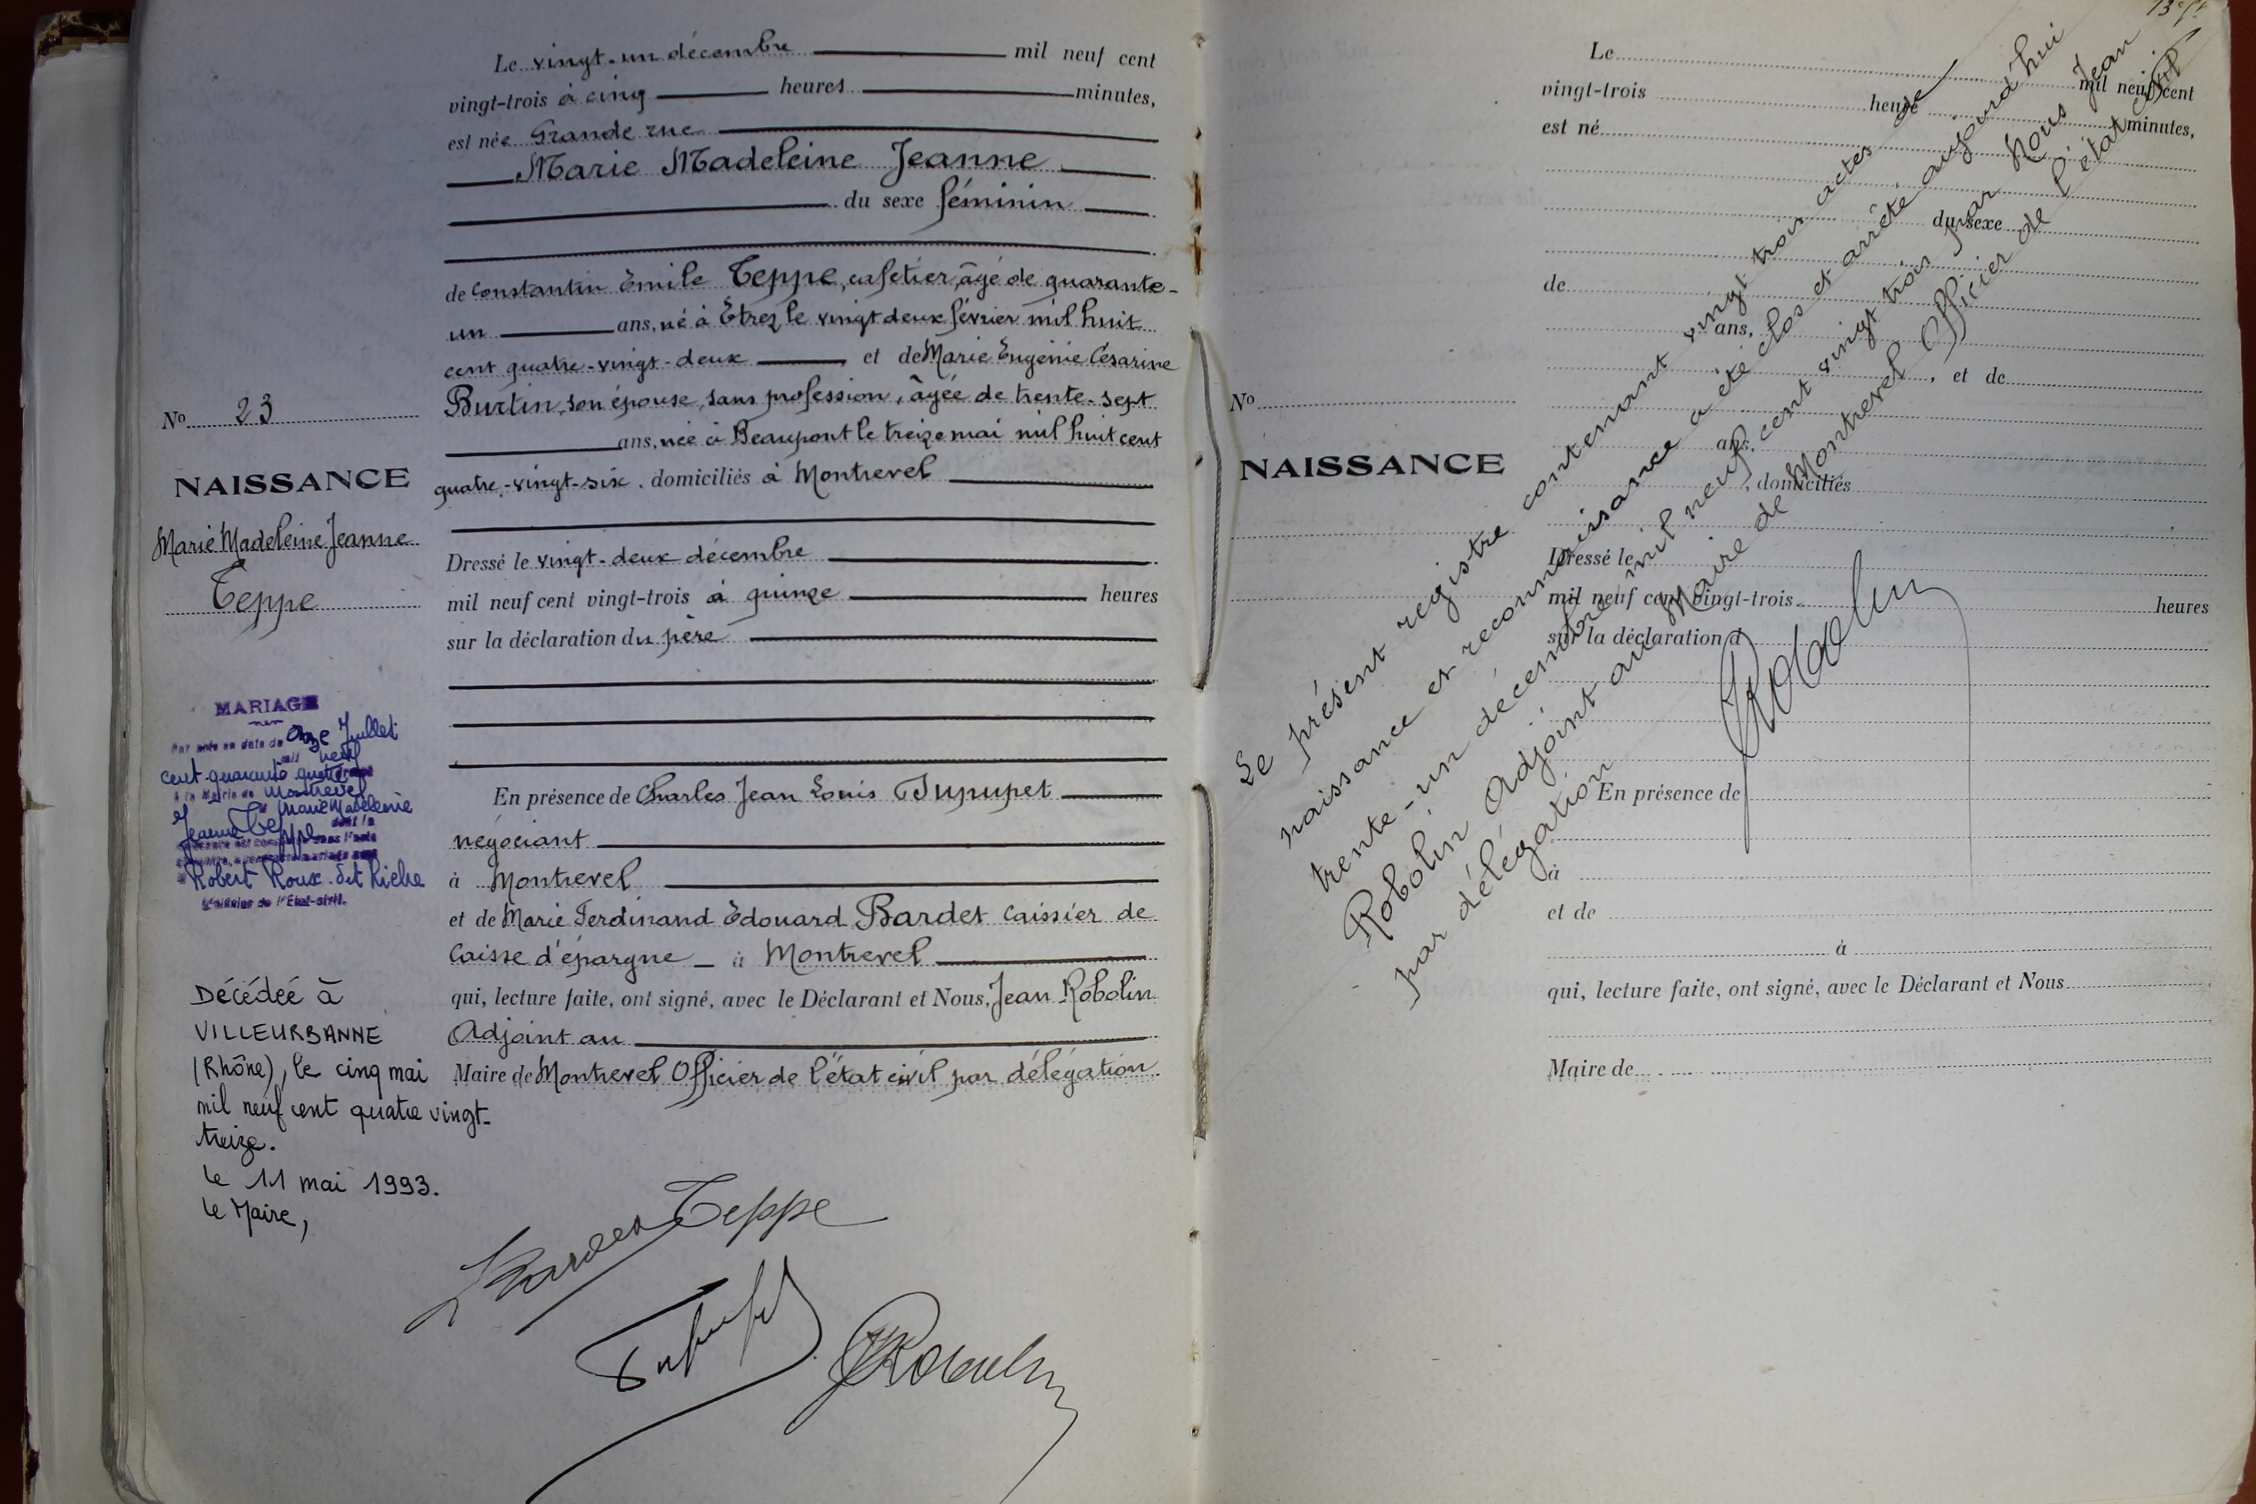 Le vingt-un décembre mil neuf cent
vingt-trois à cinq heures minutes,
est née Grande rue
Marie Madeleine Jeanne
du sexe féminin
de Constantin Émile Teppe, cafetier, âgé de quarante-
un ans, né à Etrez le vingt deux février mil huit
cent quatre-vingt-deux et de Marie Eugénie Césarine
Burtin, son épouse, sans profession, âgée de trente-sept
ans, née à Beaupont le treize mai mil huit cent
quatre-vingt-six, domiciliés à Montrevel
Dressé le vingt-deux décembre
mil neuf cent vingt-trois à quinze heures
sur la déclaration du père
En présence de Charles Jean Louis Dupupet
négociant
à Montrevel
et de Marie Ferdinand Edouard Bardet caissier de
Caisse d'épargne à Montrevel
qui, lecture faite, ont signé, avec le Déclarant et Nous, Jean Robolin
Adjoint au
Maire de Montrevel Officier de l'état civil par délégation.
No 23
NAISSANCE
Marie Madeleine Jeanne
Teppe
MARIAGE
Par acte en date de Onze Juillet
mil neuf
cent quarante quatre
à la Mairie de Montrevel
Marie Madeleine
Jeanne Teppe dont la
Robert Roux dit
L'Officier de l'Etat-civil.
Décédée à
VILLEURBANNE
(Rhône), le cinq mai
mil neuf cent quatre vingt-
treize.
le 11 mai 1993.
Le Maire,
Bardet Teppe
Dupupet
Robolin
Le mil neuf cent
vingt-trois heure minutes,
est né
du sexe
de
ans,
, et de
ans,
, domiciliés
No
NAISSANCE
Dressé le
mil neuf cent vingt-trois heures
sur la déclaration d
En présence de
à
et de
à
qui, lecture faite, ont signé, avec le Déclarant et Nous
Maire de
Le présent registre contenant vingt trois actes de
naissance et reconnaissance a été clos et arrêté aujourd'hui
trente-un décembre mil neuf cent vingt trois par Nous Jean
Robolin Adjoint au Maire de Montrevel Officier de l'état civil
par délégation
Robolin